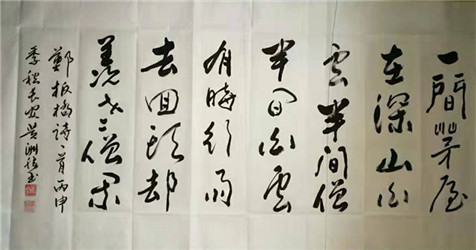 一間茅屋
在深山白
雲半間僧
半間白雲
有時行雨
去回頭却
羡老僧閑
鄭板橋詩一首丙申
季秋長安